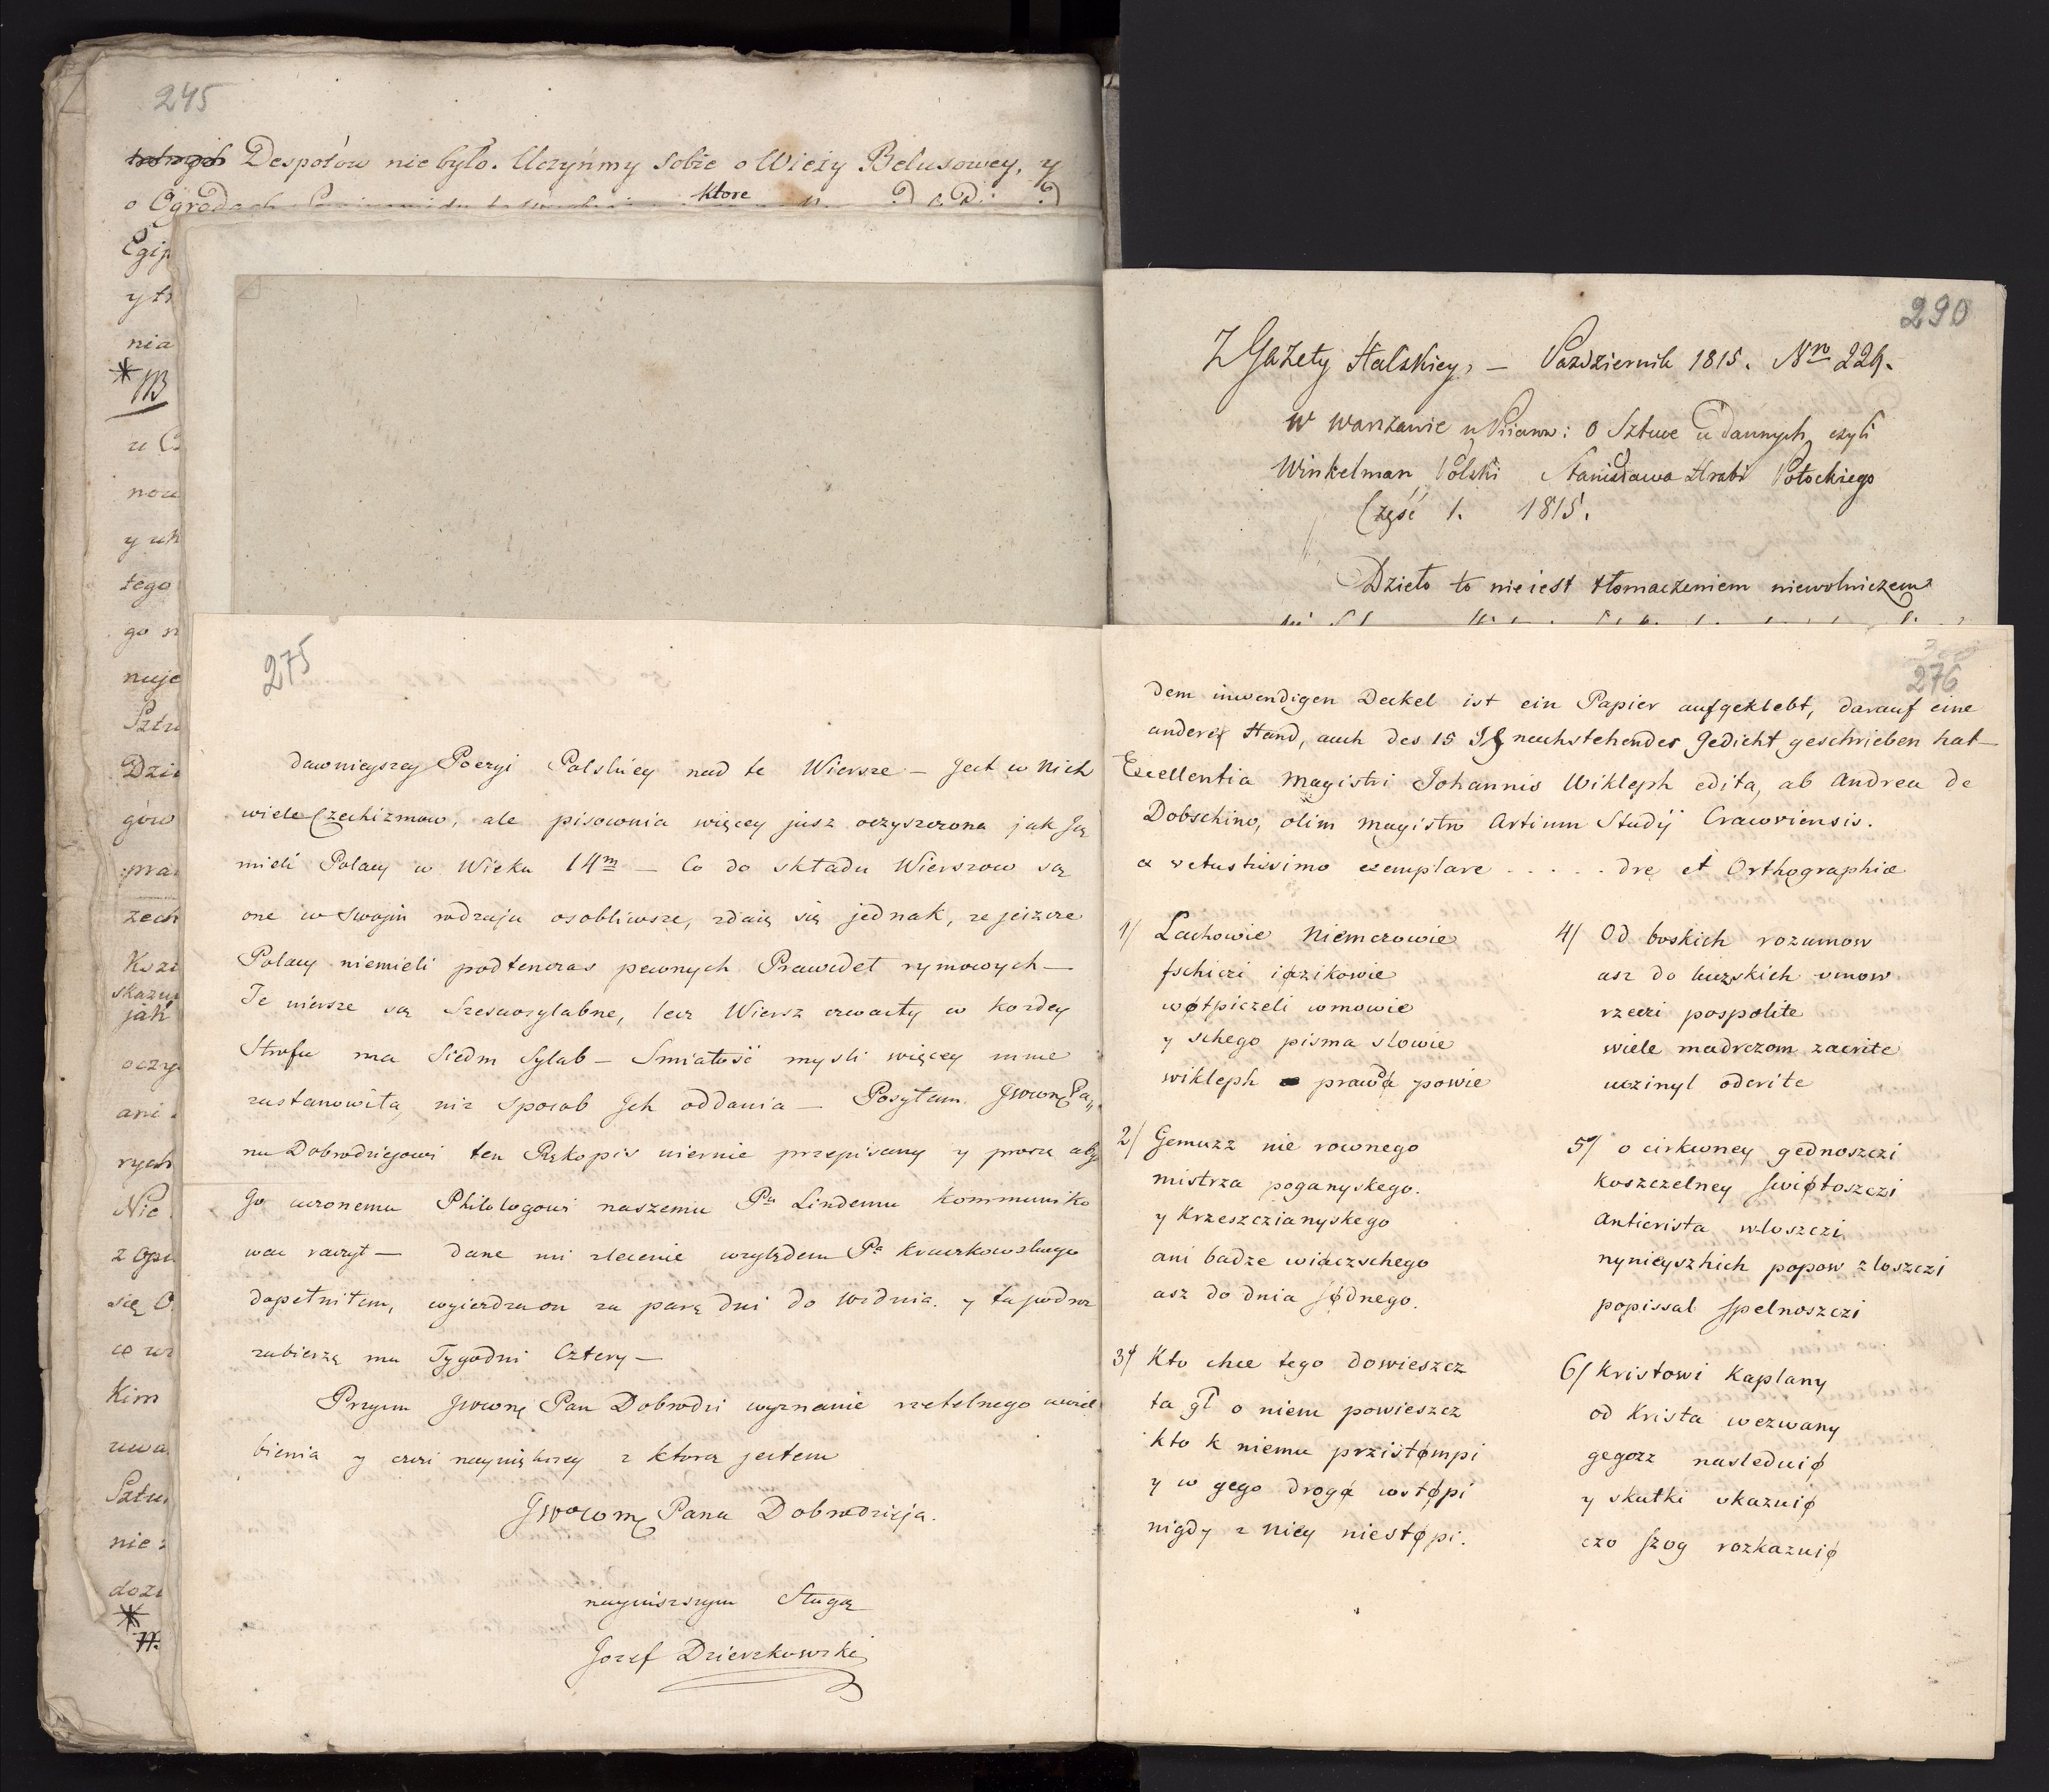 245
Despotów nie było. Uczyńmy sobie o Wieży Belusowey, y
o Ogrodach
ktore
Egip
y tr
nia
NB
u C
now
y uk
tego
go n
nuje
Sztu
Dzie
gów
pra
zech
Ksze
skazu
jak
oczy
ani
rych
Nic
z Opi
się O
co wz
Kim
uwa
Sztu
nie
dozi
290
Z Gazety Halskiey, — Pazdziernik 1815. Nro 229.
w Warszawie u Piiarow: O Sztuce u dawnych czyli
Winkelman Polski Stanisława Hrabi Potockiego
Część 1. 1815.
Dzieło to nie iest tłomaczeniem niewolniczem
275
dawnieyszey Poezyi Polskiey nad te Wiersze — Jest w nich
wiele Czechizmow, ale pisownia więcey jusz oczyszczona jak Ją
mieli Polacy w Wieku 14m — Co do składu Wierszow są
one w swojm rodzaju osobliwsze, zdaią się jednak, ze jeszcze
Polacy niemieli podtenczas pewnych Prawideł rymowych —
Te wiersze są szesciosylabne, lecz Wiersz czwarty w kozdey
Strofie ma Siedm Sylab — Smiałość mysli więcey mnie
zastanowiła, niz sposob Jch oddania — Posyłam JWWmę Pa„
nu Dobrodziejowi ten Rękopis wiernie przepisany y proszę aby
go uczonemu Philologowi naszemu Pu Lindemu kommuniko
wać raczył — dane mi zlecenie względem Pa Kruczkowskiego
dopełniłem, wyiezdza on za parę dni do Widnia y ta podroz
zabierze mu Tygodni Cztery —
Przyim JWWmę Pan Dobrodzi wyznanie rzetelnego uwiel
bienia y czci naywiększey z ktorą jestem
JWWmę Pana Dobrodzieja.
nayniszszym Sługą
Jozef Dzierzkowski
276
dem inwendigen Deckel ist ein Papier aufgeklebt, darauf eine
andere Hand, auch des 15 S nachstehendes Gedicht geschrieben hat —
Excellentia Magistri Johannis Wikleph edita, ab Andrea de
Dobschino, olim magistro Artium Studij Cracoviensis.
ex vetustissimo exemplare . . . . . dre et Orthographia
1/ Lachowie Niemczowie
fschiczi iøzikowie
wøtpiczeli wmowie
y schego pisma slowie
wikleph prawdø powie
2/ Gemuzz nie rownego
mistrza poganyskego.
y Krzeszczianyskego
ani badze wiøczschego
asz do dnia sødnego.
3/ Kto chce tego dowieszcz
ta gł o niem powieszcz
kto k niemu przistømpi
y w gego drogø wstøpi
nigdy z niey niestøpi.
4/ Od boskich rozumow
asz do luzskich vmow
rzeczi pospolite
wiele madrczom zacrite
uczinyl odcrite
5/ o cirkwney gednoszczi
koszczelney swiøtoszczi
Anticrista wloszczi
nynieyszhich popow zloszczi
popissal spelnoszczi
6/ Kristowi Kaplany
od Krista wezwany
gegozz nasleduiø
y skutki vkazuiø
czo szog rozkazuiø